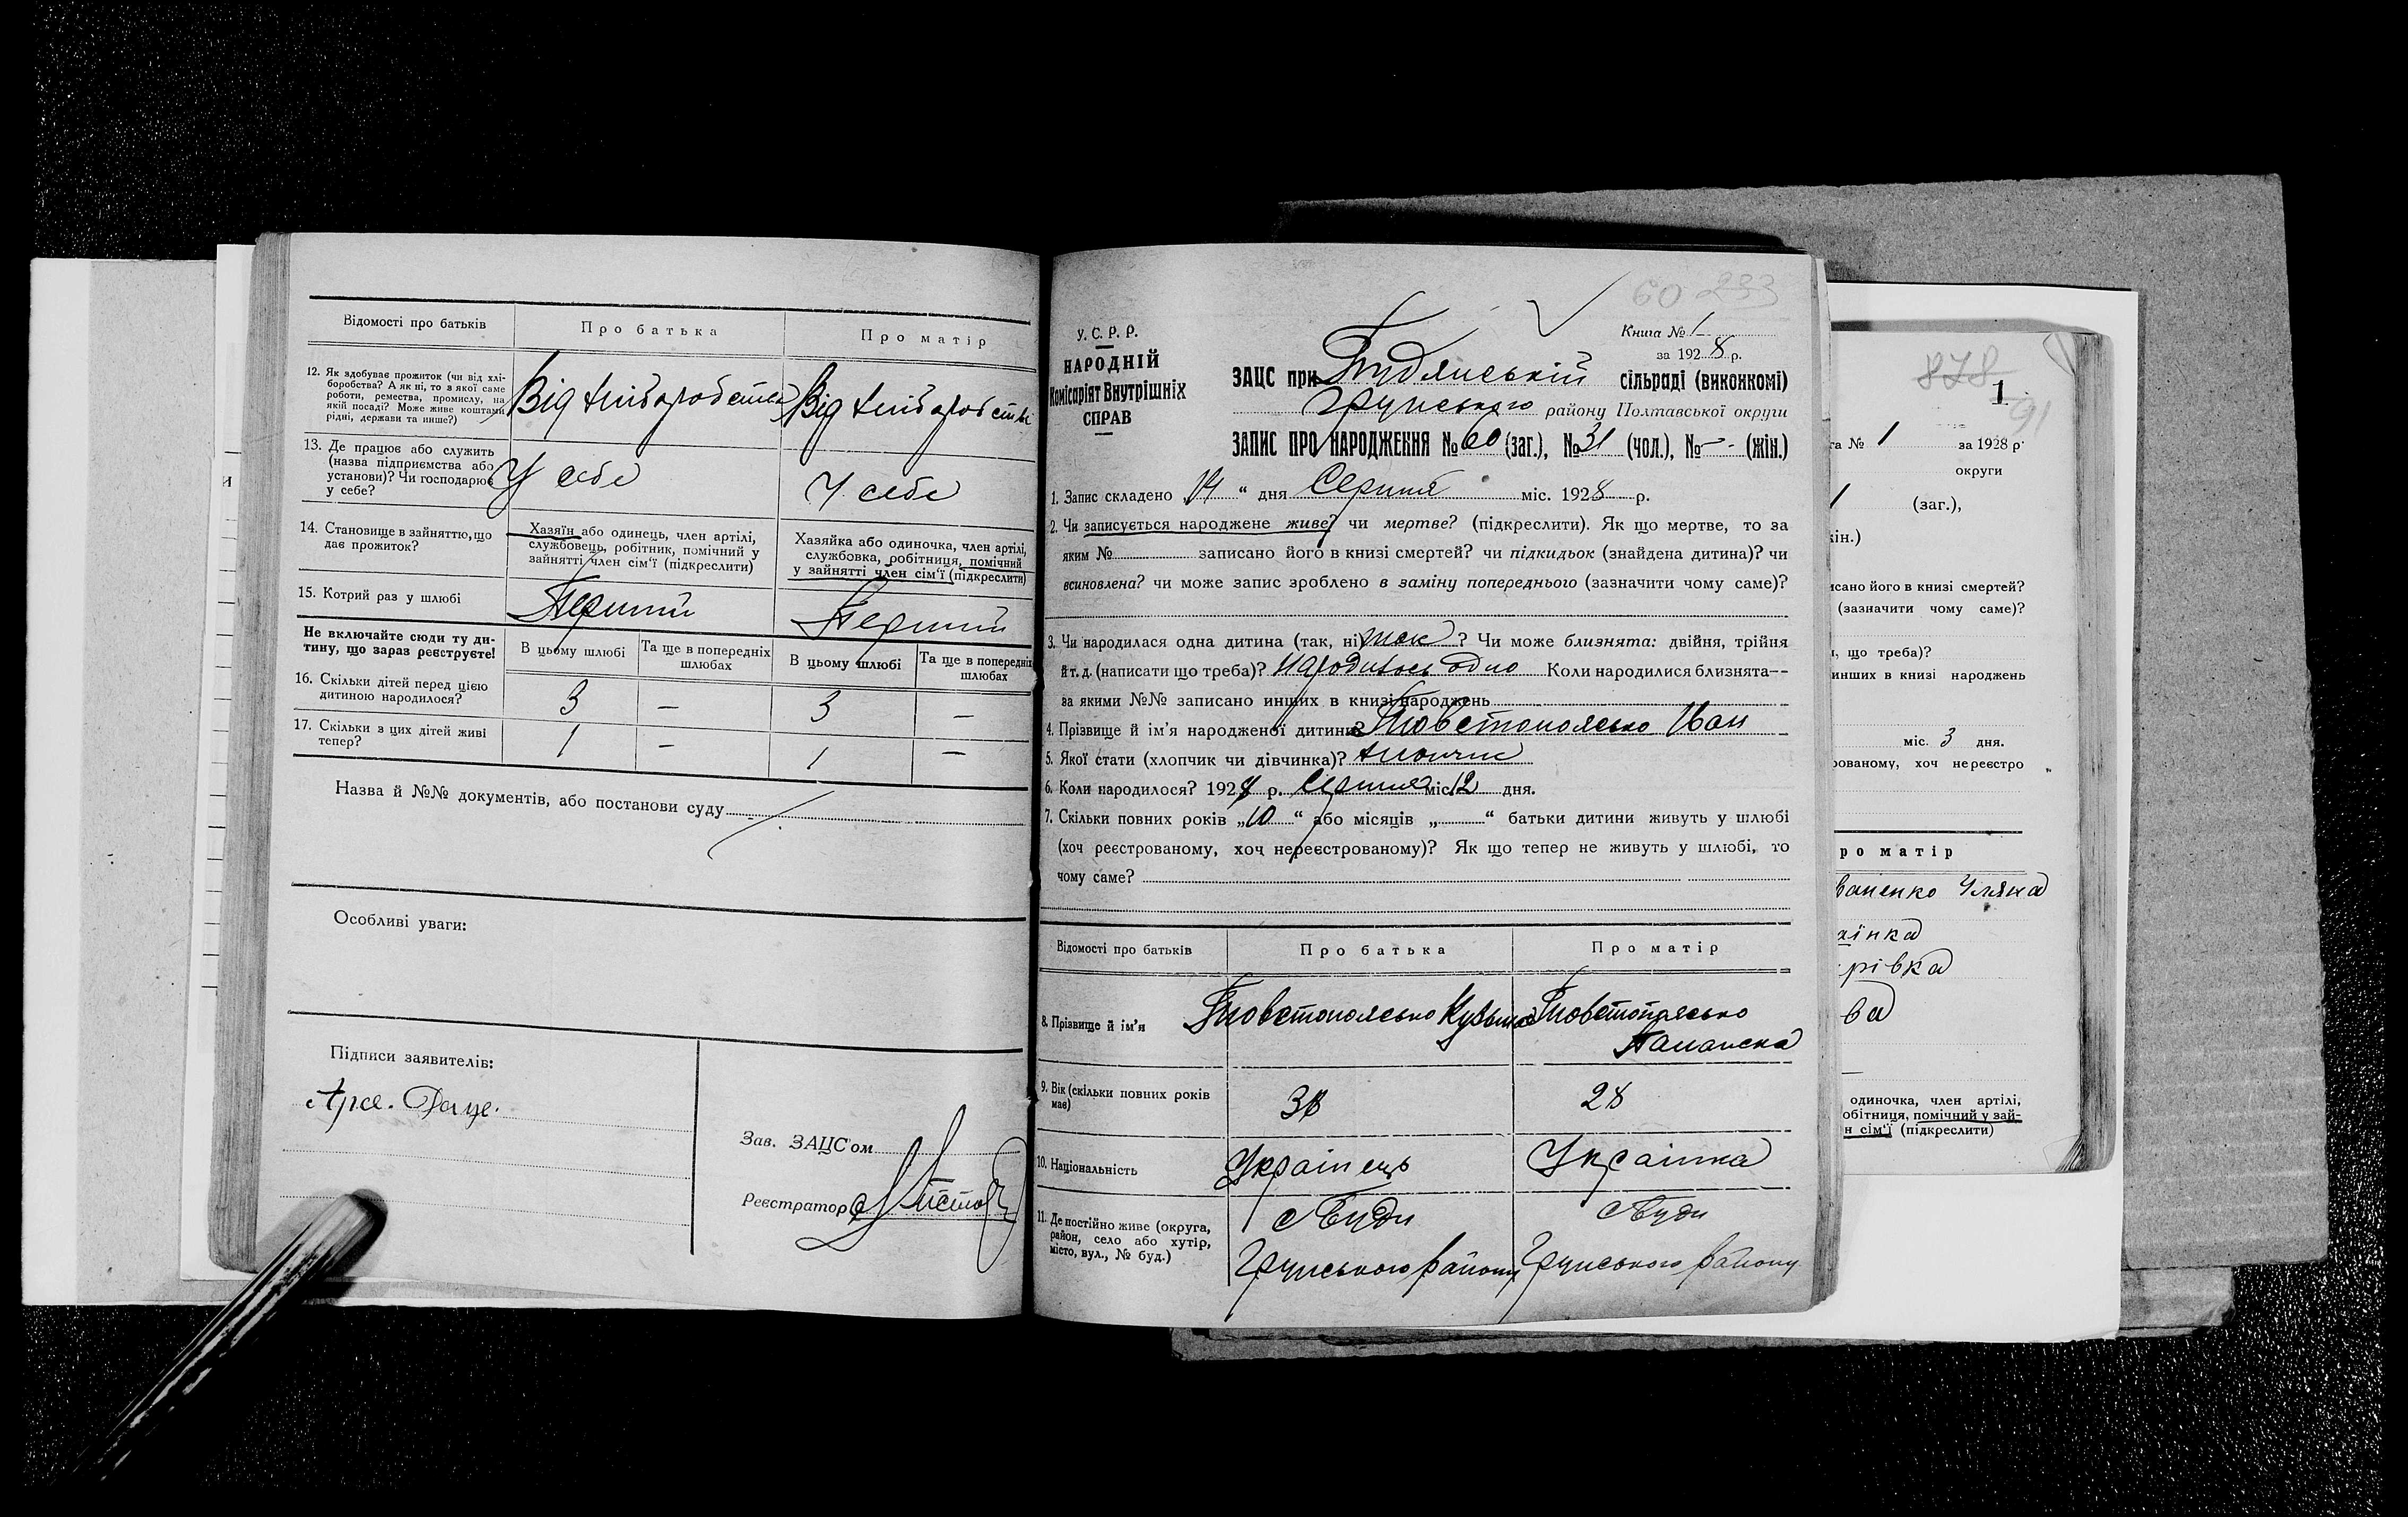 Відомості про батьків
Про батька
Про матір
12. Як здобуває прожиток (чи від хлі-
боробства? А як ні, то з якої саме
роботи, ремества, промислу, на
якій посаді? Може живе коштами
рідні, держави та инше?)
Від хліборобства
Від хліборобства
13. Де працює або служить
(назва підприємства або
установи)? Чи господарює
у себе?
У себе
У себе
14. Становище в зайняттю, що
дає прожиток?
Хазяїн або одинець, член артілі,
службовець, робітник, помічний у
зайнятті член сім'ї (підкреслити)
Хазяйка або одиночка, член артілі,
службовка, робітниця, помічний
у зайнятті член сім'ї (підкреслити)
15. Котрий раз у шлюбі
Перший
Перший
Не включайте сюди ту ди-
тину, що зараз реєструєте!
В цьому шлюбі
Та ще в попередніх
шлюбах
В цьому шлюбі
Та ще в попередніх
шлюбах
16. Скільки дітей перед цією
дитиною народилося?
3
—
3
—
17. Скільки з цих дітей живі
тепер?
1
—
1
—
Назва й №№ документів, або постанови суду
Особливі уваги:
Підписи заявителів:
Зав. ЗАЦС'ом
Реєстратор
60 233
У. С. Р. Р.
НАРОДНІЙ
Комісаріят Внутрішніх
СПРАВ
Книга № 1
за 1928 р.
ЗАЦС при Будянській сільраді (виконкомі)
Грунського району Полтавської округи
ЗАПИС ПРО НАРОДЖЕННЯ № 60 (заг.), № 31 (чол.), № — (жін.)
1. Запис складено 14 “ дня Серпня міс. 1928 р.
2. Чи записується народжене живе? чи мертве? (підкреслити). Як що мертве, то за
яким № записано його в книзі смертей? чи підкидьок (знайдена дитина)? чи
всиновлена? чи може запис зроблено в заміну попереднього (зазначити чому саме)?
3. Чи народилася одна дитина (так, ні) так? Чи може близнята: двійня, трійня
й т. д. (написати що треба)? народилось одно Коли народилися близнята--
за якими №№ записано инших в книзі народжень
4. Прізвище й ім'я народженої дитини? Товстоноясько Іван
5. Якої статі (хлопчик чи дівчинка)? хлопчик
6. Коли народилося? 1928 р. Серпня міс. 12 дня.
7. Скільки повних років „10“ або місяців „ “ батьки дитини живуть у шлюбі
(хоч реєстрованому, хоч нереєстрованому)? Як що тепер не живуть у шлюбі, то
чому саме?
Відомості про батьків
Про батька
Про матір
8. Прізвище й ім'я
Кузьма
9. Вік (скільки повних років
має)
38
28
10. Національність
Українець
Українка
11. Де постійно живе (округа,
район, село або хутір,
місто, вул., № буд.)
с Буди
Грунського району
с Буди
Грунського району
878
1
91
га № 1 за 1928 р.
округи
1 (заг.),
кін.)
исано його в книзі смертей?
(зазначити чому саме)?
, що треба)?
инших в книзі народжень
міс. 3 дня.
рованому, хоч нереєстро
ро матір
ваненко Уляна
аїнка
рівка
ва
одиночка, член артілі,
обітниця, помічний у зай-
н сім'ї (підкреслити)